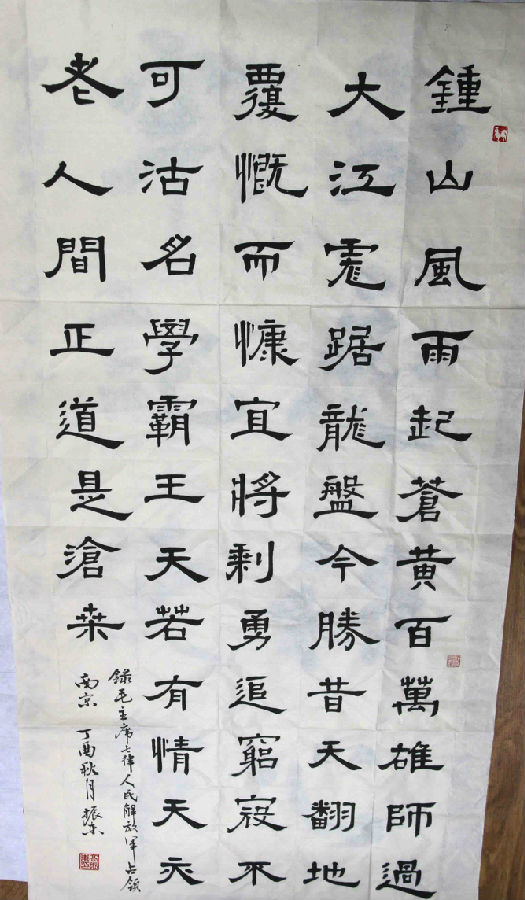 鍾山風雨起蒼黄百萬雄師過
大江虎踞龍盤今勝昔天翻地
覆慨而慷宜將剩勇追窮寇不
可沽名學霸王天若有情天亦
老人間正道是滄桒
録毛主席七律人民解放軍占領
南京 丁酉秋月 振东